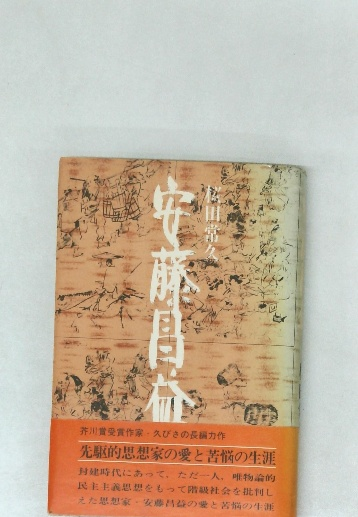 桜田常久
安藤昌益
芥川賞受賞作家・久びさの長編力作
先駆的思想家の愛と苦悩の生涯
封建時代にあって、ただ一人、唯物論的
民主主義思想をもって階級社会を批判し
えた思想家・安藤昌益の愛と苦悩の生涯